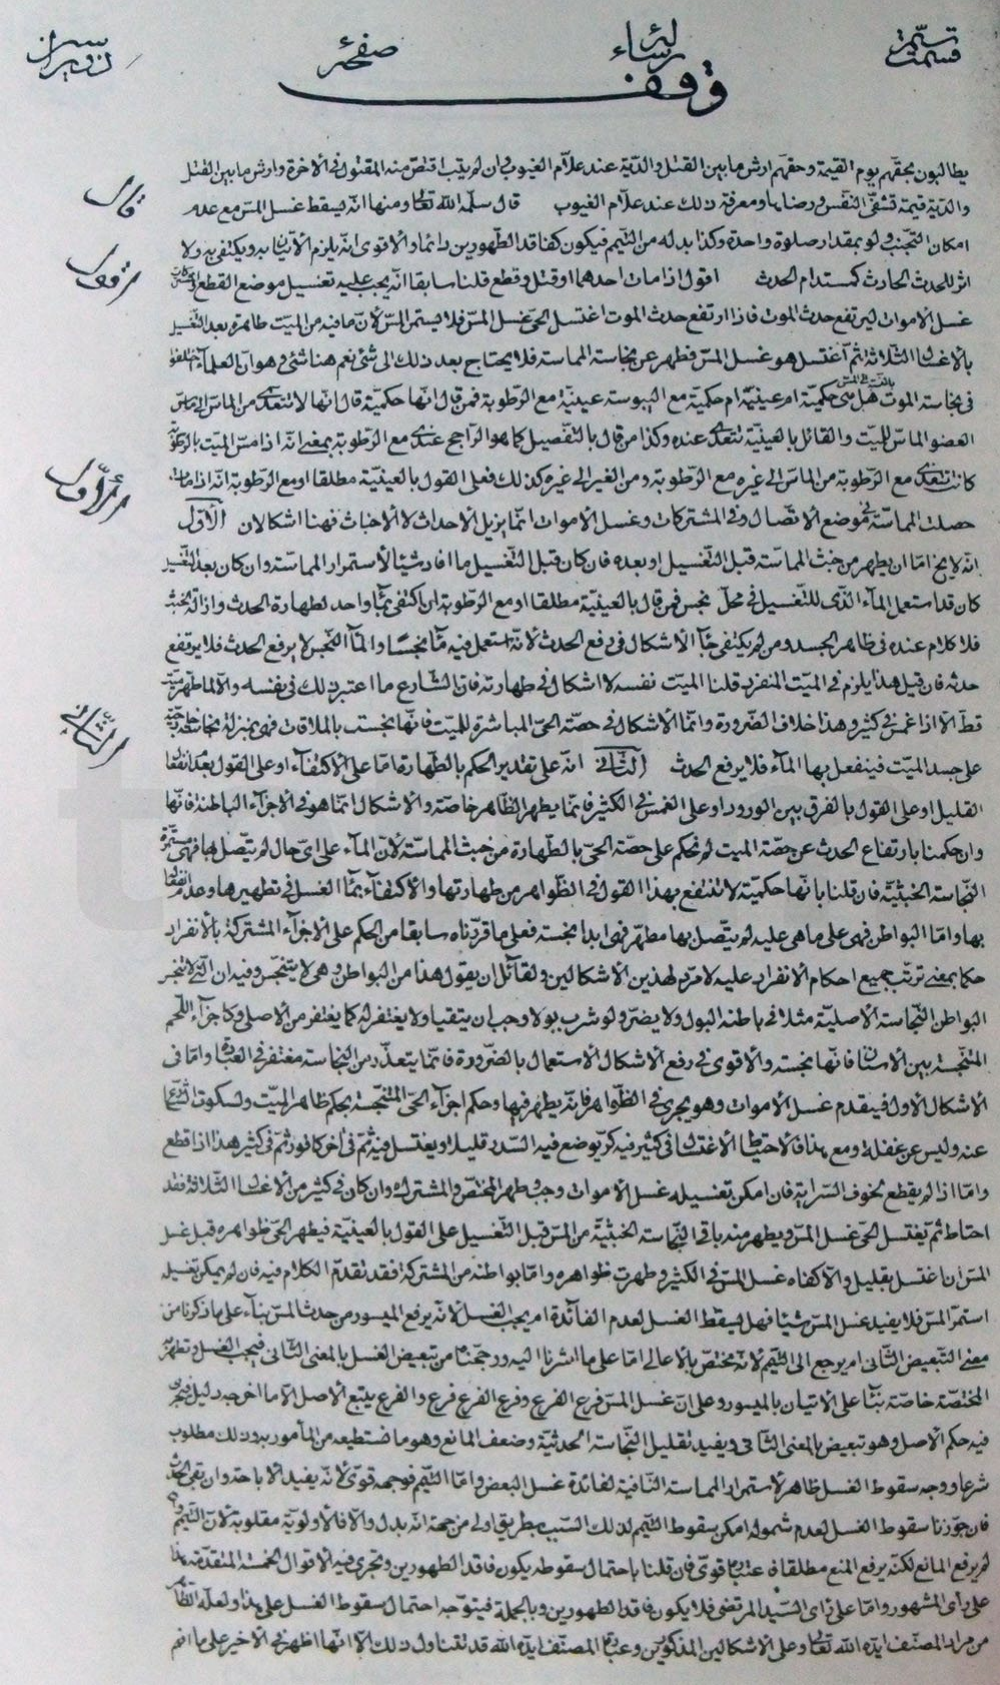 رسالة
صفحة
وقف
يطالبون بحقهم يوم القيمة وحقهم ارش ما بين القتل والدية عند علام الغيوب وان لم يتب اقتص منه المقتول في الاخرة وارش ما بين القتل
والدية قيمة تشفي النفس ورضاها ومعرفة ذلك عند علام الغيوب قال سلمه الله تعالى ومنها انه يسقط غسل المس مع عدم
قال
امكان التجنب ولو بمقدار صلوة واحدة وكذا بدله من التيمم فيكون كفاقد الطهورين دائما والاقوى انه يلزم الاتيان به ويكتفي به ولا
اقول
اثر للحدث الحادث كمستدام الحدث اقول اذا مات احدهما او قتل وقطع قلنا سابقا انه يجب عليه تغسيل موضع القطع
غسل الاموات ليرتفع حدث الموت فاذا ارتفع حدث الموت اغتسل الحي غسل المس فلا يستمر المس لان ما فيه من الميت طاهرة بعد
بالاغسال الثلاثة ثم اغتسل هو غسل المس فطهر عن نجاسة المماسة فلا يحتاج بعد ذلك الى شئ نعم هنا شئ وهو ان العلماء اختلفوا
في نجاسة الموت هل هي حكمية ام عينية ام حكمية مع اليبوسة عينية مع الرطوبة فمن قال انها حكمية قال انها لا تتعدى من الماس الى ماس
العضو الماس للميت والقائل بالعينية تتعدى عنده وكذا من قال بالتفصيل كما هو الراجح عندي مع الرطوبة بمعنى انه اذا مس الميت بالرطوبة
كانت تتعدى مع الرطوبة من الماس الى غيره مع الرطوبة ومن الغير الى غيره كذلك فعلى القول بالعينية مطلقا او مع الرطوبة انه اذا مات
الاول
حصلت المماسة في موضع الاتصال وفي المشتركات وغسل الاموات انما يزيل الاحداث لا الاخباث فهنا اشكالان الاول
انه لا يخ اما ان يطهر من خبث المماسة قبل التغسيل او بعده فان كان قبل التغسيل ما افاد شيئا لاستمرار المماسة وان كان بعد
كان قد استعمل الماء الذي للتغسيل في محل نجس فمن قال بالعينية مطلقا او مع الرطوبة ان اكتفى بماء واحد لطهارة الحدث وازالة الخبث
فلا كلام عنده في ظاهر الجسد ومن لم يكتف جاء الاشكال في رفع الحدث لانه استعمل فيه ماء نجسا والماء النجس لا يرفع الحدث فلا يرتفع
حدثه فان قيل هذا يلزم في الميت المنفرد قلنا الميت نفسه لا اشكال في طهارته فان الشارع ما اعتبر ذلك في نفسه والا لما طهر ميت
قط الا اذا غمس في كثير وهذا خلاف الضرورة وانما الاشكال في حصة الحي المباشرة للميت فانها نجست بالملاقات فهي بمنزلة نجاسة
الثاني
على جسد الميت فينفعل بها الماء فلا يرفع الحدث الثاني انه على تقدير الحكم بالطهارة اما على الاكتفاء او على القول بعدم انفعال
القليل او على القول بالفرق بين الورود او على الغمس في الكثير فانما يطهر الظاهر خاصة والاشكال انما هو في الاجزاء الباطنة فانها
وان حكمنا بارتفاع الحدث عن حصة الميت لم نحكم على حصة الحي بالطهارة من خبث المماسة لان الماء على اي حال لم يتصل بها فهي مستمرة
النجاسة الخبثية فان قلنا بانها حكمية لا تنتفع بهذا القول في الظواهر من طهارتها والاكتفاء بماء الغسل في تطهيرها وعدم
بها واما البواطن فهي على ما هي عليه لم يتصل بها مطهر فهي ابدا نجسة فعلى ما قررناه سابقا من الحكم على الاجزاء المشتركة بالانفراد
حكما بمعنى ترتب جميع احكام الانفراد عليه لا مرد لهذين الاشكالين ولقائل ان يقول هذا من البواطن وهي لا يتنجس وفيه ان التي لا تنجس
البواطن النجاسة الاصلية مثلا في باطنه البول ولا يضر ولو شرب بولا وجب ان يتقيا ولا يغتفر له كما يغتفر من الاصلي وكاجزاء اللحم
المتنجسة بين الاسنان فانها نجسة والاقوى في رفع الاشكال الاستعمال بالضرورة فانما يتعذر من النجاسة مغتفر في العبادة واما في
الاشكال الاول فيقدم غسل الاموات وهو يجري في الظواهر فانه يطهر فيها وحكم اجزاء الحي المتنجسة بحكم ظاهر الميت ولسكوت الشرع
عنه وليس عن غفلة ومع هذا فالاحتياط الاغتسال في كثير فيه كر يوضع فيه السدر قليلا ويغتسل فيه ثم في اخر كافور ثم في كثير هذا اذا قطع
واما اذا لم يقطع لخوف السراية فان امكن تغسيله غسل الاموات وجب وطهر المختص والمشترك وان كان في كثير من الاغسال الثلاثة فقد
احتاط ثم يغتسل الحي غسل المس ويطهر منه باقي النجاسة الخبثية من المس قبل التغسيل على القول بالعينية فيطهر الحي ظواهره قبل غسل
المس ان اغتسل بقليل والا كفاه غسل المس في الكثير وطهرت ظواهره واما بواطنه من المشتركة فقد تقدم الكلام فيه فان لم يمكن تغسيله
استمر المس فلا يفيد غسل المس شيئا فهل يسقط الغسل لعدم الفائدة ام يجب الغسل لانه يرفع الميسور من حدث المس بناء على ما ذكرنا من
معنى التبعيض الثاني ام يرجع الى التيمم لانه يختص بالاعالي اما على ما اشرنا اليه ورجحناه من تبعيض الغسل بالمعنى الثاني فيجب الغسل وتطهر
المختصة خاصة بناء على الاتيان بالميسور وعلى ان غسل المس فرع الفرع وفرع الفرع فرع والفرع يتبع الاصل الا ما اخرجه دليل فيجري
فيه حكم الاصل وهو تبعيض بالمعنى الثاني ويفيد تقليل النجاسة الحدثية وضعف المانع وهو ما تستطيعه من المأمور به وذلك مطلوب
شرعا ووجه سقوط الغسل ظاهر لاستمرار المماسة النافية لفائدة غسل البعض واما التيمم فوجهه قوي لانه يفيد الاباحة وان بقي الحدث
فان جوزنا سقوط الغسل لعدم شموله امكن سقوط التيمم لذلك السبب بطريق اولى من جهة انه بدل والا فالاولوية مقلوبة لان التيمم
لم يرفع المانع لكنه يرفع المنع مطلقا فاعتباره اقوى فان قلنا باحتمال سقوطه يكون فاقد الطهورين وتجري فيه الاقوال الخمسة المتقدمة هذا
على رأي المشهور واما على رأي السيد المرتضى فلا يكون فاقد الطهورين وبالجملة فيتوجه احتمال سقوط الغسل على هذا ولعله الظاهر
من مراد المصنف ايده الله تعالى وعلى الاشكالين المذكورين وعبارة المصنف ايده الله قد تتناول ذلك الا انها اظهر في الاخير على ما افهم